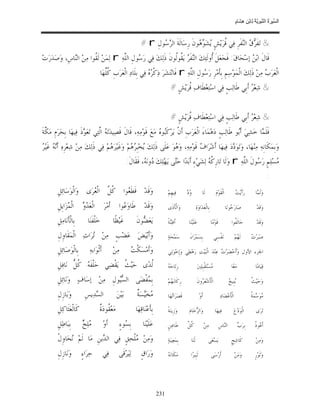 السيرة النبوية لابن هشام
& تفرق النفر في قريش يشوهون رسالة الرسول r //
قال ابن إسحاق: فجعل أولئك النفر يقولون ذلك في رسول الله r لمن لقوا من الناس، وصدرت
العرب من ذلك الموسم بأمر رسول الله r فانتشر ذكره في بلاد العرب كلها
& شعر أبي طالب في استعطاف قريش //
& شعر أبي طالب في استعطاف قريش //
فلما خشي أبو طالب دهماء العرب أن يركبوه مع قومه، قال قصيدته التي تعوذ فيها بحرم مكة
وبمكانه منها، وتودد فيها أشراف قومه، وهو على ذلك يخبرهم وغيرهم في ذلك من شعره أنه غير
مسلم رسول الله r ولا تاركه لشيء أبدا حتى يهلك دونه، فقال
ولما رأيت القوم لا ود فيهم وقد قطعوا كل العرى والوسائل
وقد صارحونا بالعداوة والأذى وقد طاوعوا أمر العدو المزايل
وقد حالفوا قوما علينا أظنة يعضون غيظا خلفنا بالأنامل
صبرت لهم نفسي بسمراء سمحة وأبيض عضب من تراث المقاول
وأحضرت عند البيت رهطي وإخوتي وأمسكت من أثوابه بالوصائل
قياما معا مستقبلين رتاجه لدى حيث يقضي حلفه كل نافل
وحيث ينيخ الأشعرون ركابهم بمفضى السيول من إساف ونائل
موسمة الأعضاد أو قصراتها مخيسة بين السديس وبازل
ترى الودع فيها والرخام وزينة بأعناقها معقودة كالعثاكل
أعوذ برب الناس من كل طاعن علينا بسوء أو ملح بباطل
ومن كاشح يسعى لنا بمعيبة ومن ملحق في الدين ما لم نحاول
وثور ومن أرسى ثبيرا مكانه وراق ليرقى في حراء ونازل
231